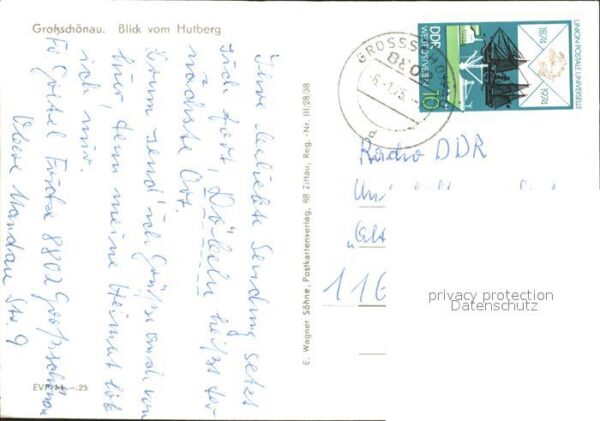 Großschönau. Blick vom Hutberg
Ihre beliebte Sendung setzt
sich fort, Döbeln heißt der
nächste Ort.
Drum send' ich Grüße auch von
hier, denn meine Heimat lob
ich mir.
8802 Großschönau
Obere Mandau Str. 9
EVP M –.25
E. Wagner Söhne, Postkartenverlag, 88 Zittau, Reg.-Nr. III/28-38
GROSSSCHÖ
8038
-6.-1.75
d
DDR
WELTPOSTVEREIN
10
UNION POSTALE UNIVERSELLE
1874
1974
Radio DDR
116
privacy protection
Datenschutz